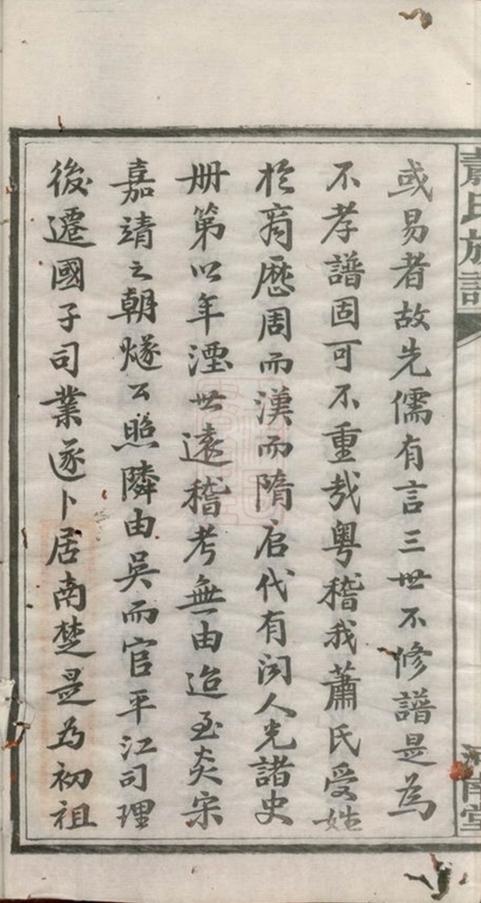 蕭氏族譜
南堂
或易者故先儒有言三世不修譜是為
不孝譜固可不重哉粵稽我蕭氏受姓
於商歷周而漢而隋唐代有闻人光諸史
册第以年湮世遠稽考無由迨至炎宋
嘉靖之朝燧公照隣由吳而官平江司理
後遷國子司業遂卜居南楚是为初祖